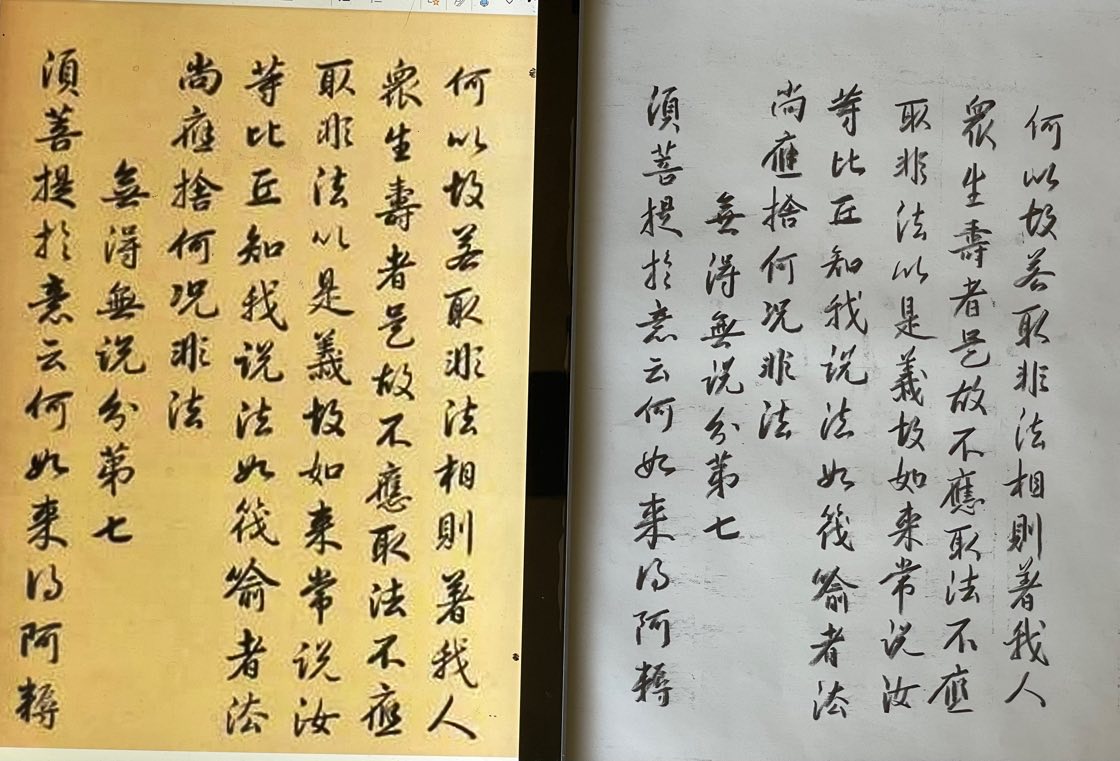 何以故若取非法相則著我人
衆生壽者是故不應取法不應
取非法以是義故如来常说汝
等比丘知我说法如筏喻者法
尚應捨何况非法
無得無说分第七
須菩提於意云何如来得阿耨
何以故若取非法相則著我人
衆生壽者是故不應取法不應
取非法以是義故如来常说汝
等比丘知我说法如筏喻者法
尚應捨何况非法
無得無说分第七
須菩提於意云何如来得阿耨